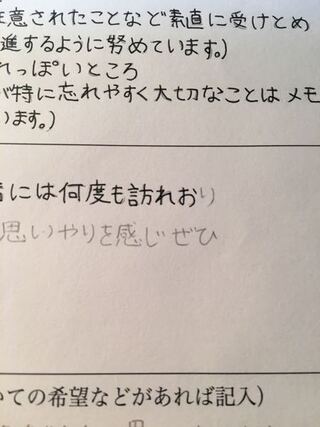 注意されたことなど素直に受けとめ
進するように努めています。)
れっぽいところ
が特に忘れやすく大切なことはメモ
います。)
には何度も訪れおり
思いやりを感じぜひ
いての希望などがあれば記入)